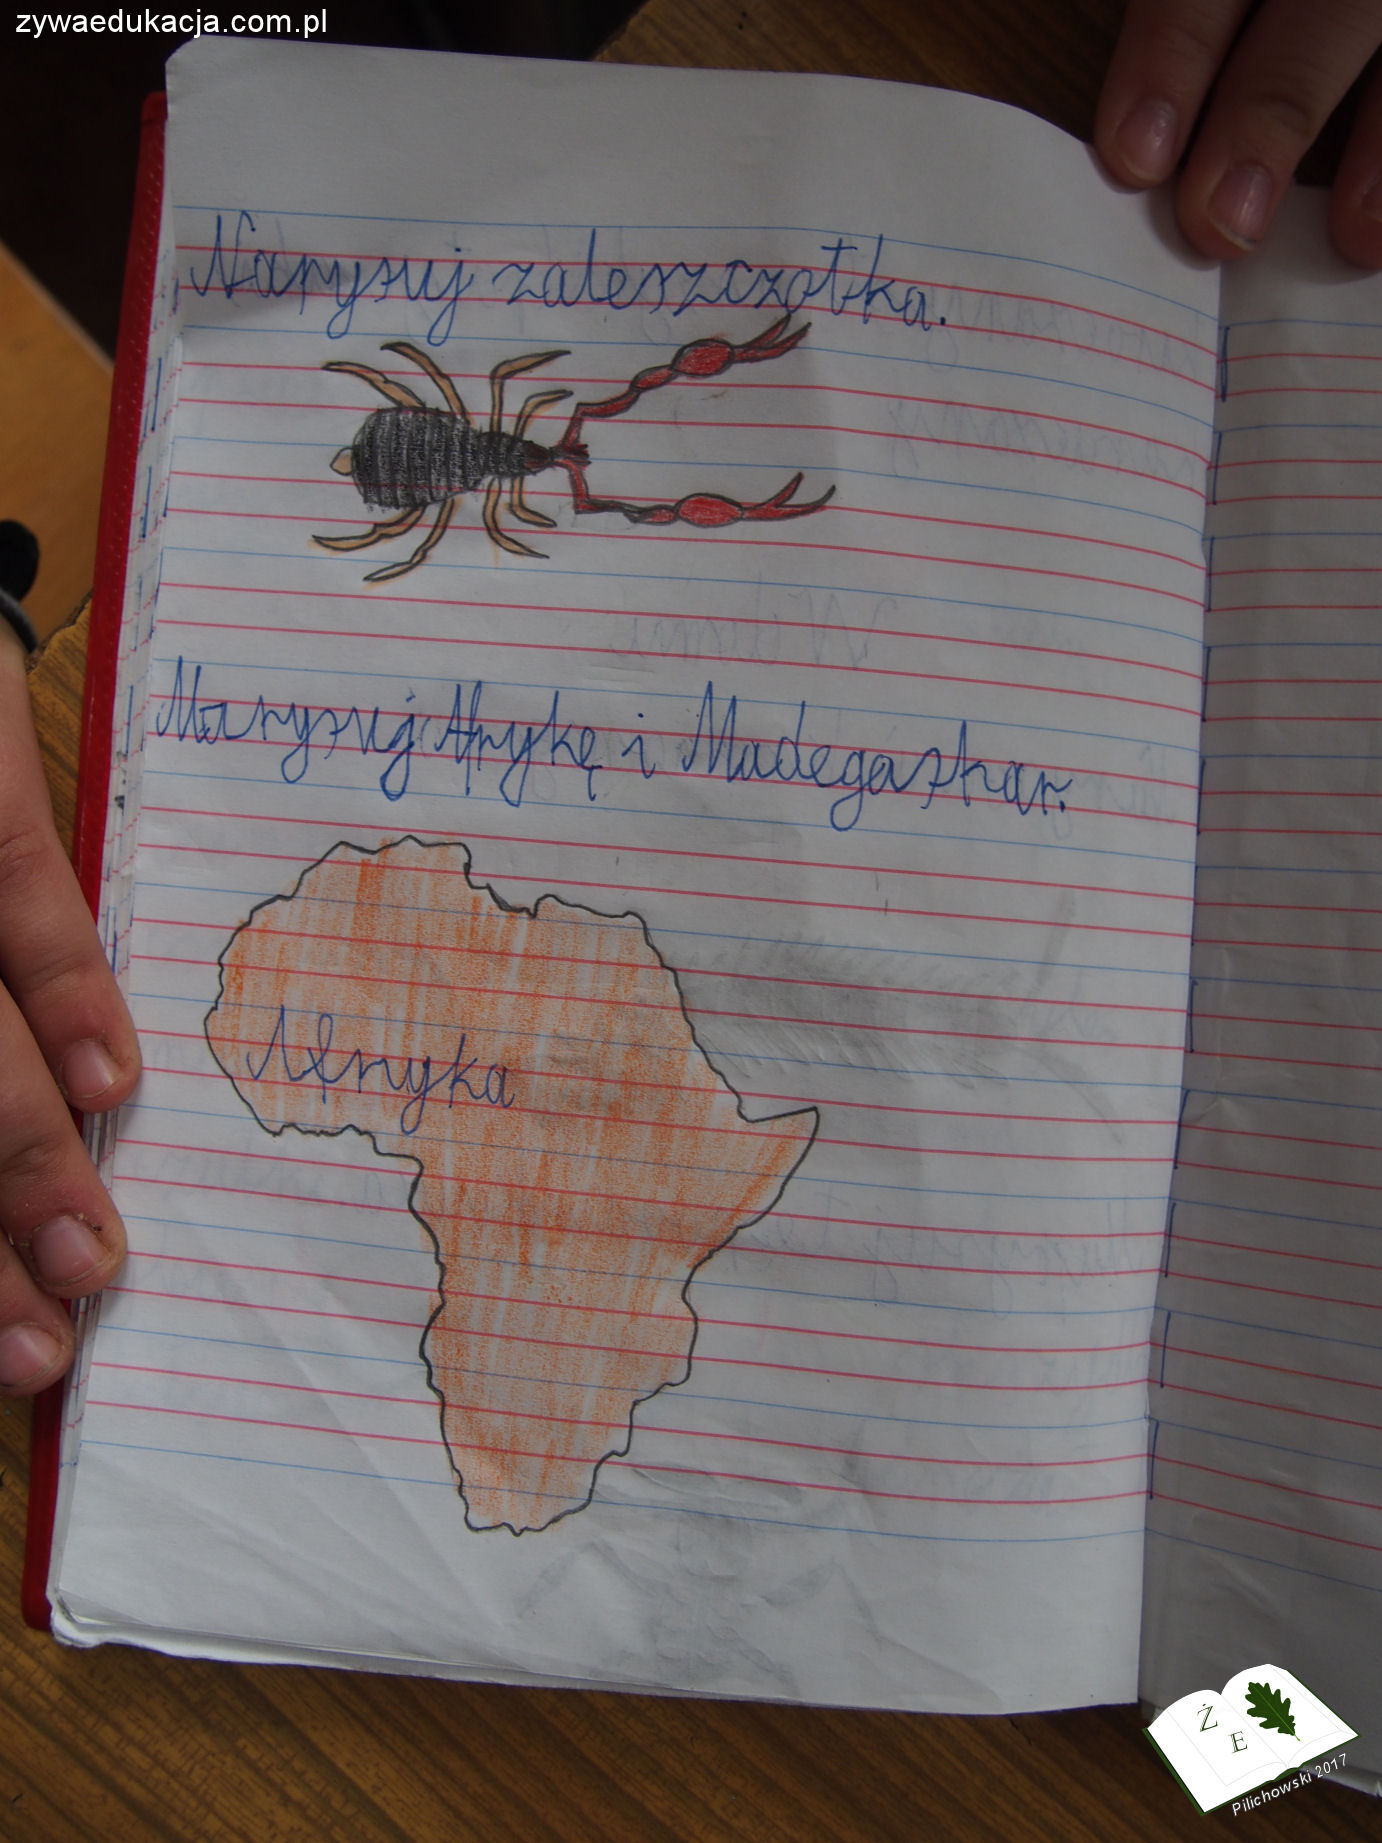 zywaedukacja.com.pl
Narysuj zaleszczotka.
Narysuj Afrykę i Madegaskar.
Afryka
Ż
E
Pilichowski 2017